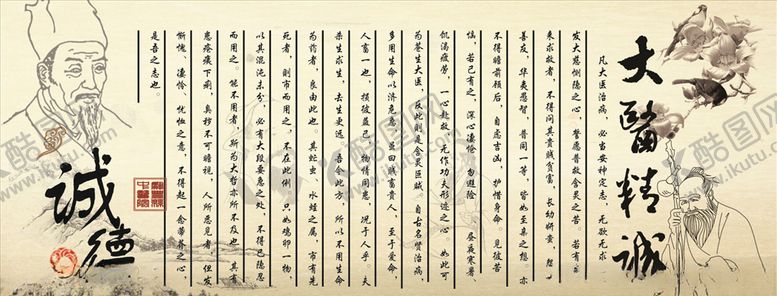 大醫精誠
凡大医治病，必当安神定志，无欲无求
发大慈恻隐之心，誓愿普救含灵之苦。若有
来求救者，不得问其贵贱贫富，长幼妍蚩，怨
善友，华夷愚智，普同一等，皆如至亲之想。亦
不得瞻前顾后，自虑吉凶，护惜身命。见彼苦
恼，若己有之，深心凄怆，勿避险 昼夜寒暑
饥渴疲劳，一心赴救，无作功夫形迹之心，如此可
为苍生大医，反此则是含灵巨贼。自古名贤治病，
多用生命以济危急，虽曰贱畜贵人，至于爱命，
人畜一也，损彼益己，物情同患，况于人乎。夫
杀生求生，去生更远。吾今此方，所以不用生命
为药者，良由此也。其虻虫、水蛭之属，市有先
死者，则市而用之，不在此例。只如鸡卵一物，
以其混沌未分，必有大段要急之处，不得已隐忍
而用之。能不用者，斯为大哲亦所不及也。其有
患疮痍下痢，臭秽不可瞻视，人所恶见者，但发
惭愧、凄怜、忧恤之意，不得起一念蒂芥之心，
是吾之志也。
诚德